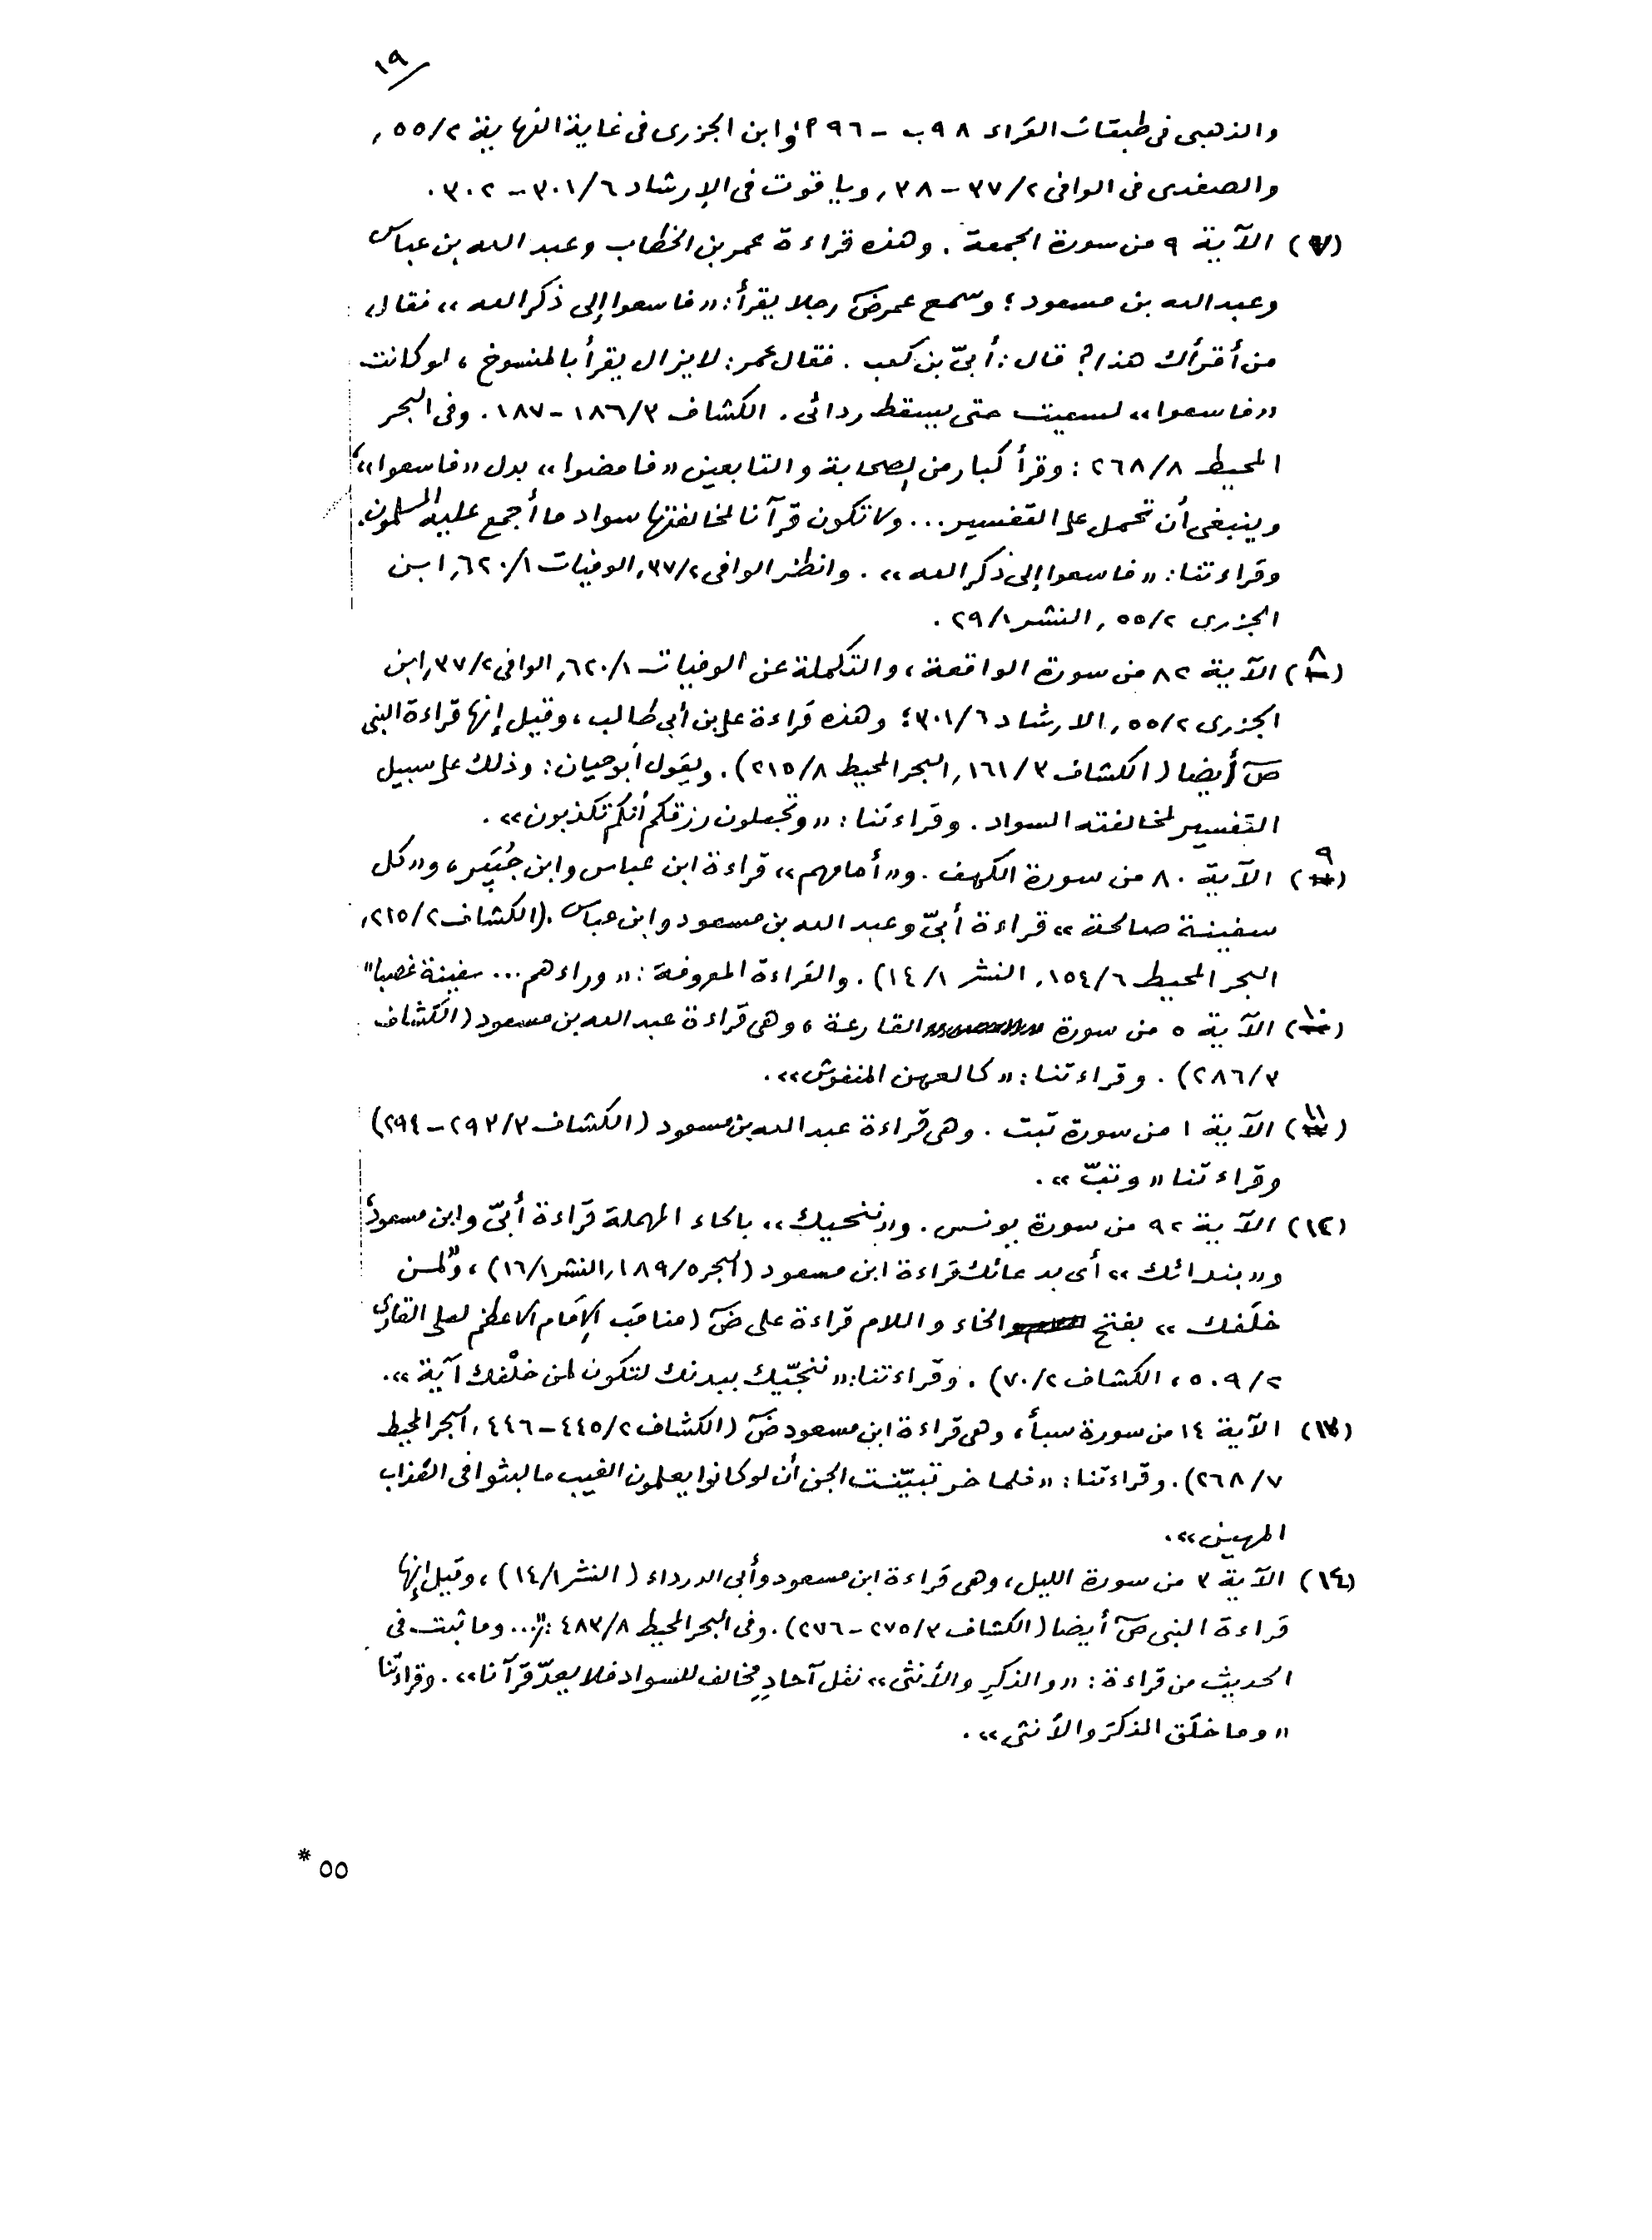 ١٩
والذهبى فى طبقات القراء ٩٨ب - ٩٦أ، وابن الجزرى فى غاية النهاية ٥٥/٢،
والصفدى فى الوافى ٣٧/٢ - ٣٨، وياقوت فى الإرشاد ٣٠١/٦ - ٣٠٢.
(٧) الآية ٩ من سورة الجمعة. وهذه قراءة عمر بن الخطاب وعبد الله بن عباس
وعبد الله بن مسعود؛ وسمع عمر رضـ رجلا يقرأ: «فاسعوا إلى ذكر الله» فقال،
من أقرأك هذا؟ قال: أبىّ بن كعب. فقال عمر: لا يزال يقرأ بالمنسوخ، لو كانت
«فاسعوا» لسعيت حتى يسقط ردائى. الكشاف ١٨٦/٣ - ١٨٧. وفى البحر
المحيط ٢٦٨/٨: وقرأ كبار من الصحابة والتابعين «فامضوا» بدل «فاسعوا»،
وينبغى أن تحمل على التفسير... ولا تكون قرآنا لمخالفتها سواد ما أجمع عليه المسلمون.
وقراءتنا: «فاسعوا إلى ذكر الله». وانظر الوافى ٣٧/٢، الوفيات ٦٢٠/١، ابن
الجزرى ٥٥/٢، النشر ٢٩/١.
(٨) الآية ٨٢ من سورة الواقعة، والتكملة عن الوفيات ٦٢٠/١، الوافى ٣٧/٢، ابن
الجزرى ٥٥/٢، الارشاد ٣٠١/٦؛ وهذه قراءة على بن أبى طالب، وقيل إنها قراءة النبى
صـ أيضا (الكشاف ١٦١/٣، البحر المحيط ٢١٥/٨). ويقول أبو حيان: وذلك على سبيل
التفسير لمخالفته السواد. وقراءتنا: «وتجعلون رزقكم أنكم تكذبون».
(٩) الآية ٨٠ من سورة الكهف. و«أمامهم» قراءة ابن عباس وابن جُبَير، و«كل
سفينة صالحة» قراءة أبىّ وعبد الله بن مسعود وابن عباس. (الكشاف ٢١٥/٢،
البحر المحيط ١٥٤/٦، النشر ١٤/١). والقراءة المعروفة: «وراءهم... سفينة غصبا"
(١٠) الآية ٥ من سورة القارعة، وهى قراءة عبد الله بن مسعود (الكشاف
٢٨٦/٣). وقراءتنا: «كالعهن المنفوش».
(١١) الآية ١ من سورة تبت. وهى قراءة عبد الله بن مسعود (الكشاف ٢٩٣/٣ - ٢٩٤)
وقراءتنا «وتبّ».
(١٢) الآية ٩٢ من سورة يونس. و«ننحيك» بالحاء المهملة قراءة أبىّ وابن مسعود؛
و«بندائك» أى بدعائك قراءة ابن مسعود (البحر ١٨٩/٥، النشر ١٦/١)، و«لمن
خلَفك» بفتح الخاء واللام قراءة على رضـ (مناقب الإمام الاعظم لعلى القارى
٥٠٩/٢، الكشاف ٧٠/٢). وقراءتنا: «ننجّيك ببدنك لتكون لمن خلْفك آية».
(١٣) الآية ١٤ من سورة سبأ، وهى قراءة ابن مسعود رضـ (الكشاف ٤٤٥/٢ - ٤٤٦، البحر المحيط
٢٦٨/٧). وقراءتنا: «فلما خر تبيّنت الجن أن لو كانوا يعلمون الغيب ما لبثوا فى العذاب
المهين».
(١٤) الآية ٣ من سورة الليل، وهى قراءة ابن مسعود وأبى الدرداء (النشر ١٤/١)، وقيل إنها
قراءة النبى صـ أيضا (الكشاف ٢٧٥/٣ - ٢٧٦). وفى البحر المحيط ٤٨٣/٨: «... وما ثبت فى
الحديث من قراءة: «والذكرِ والأنثى» نقل آحادٍ مخالف للسواد فلا يعدّ قرآنا». وقراءتنا
«وما خلَق الذكرَ والأنثى».
٥٥ *